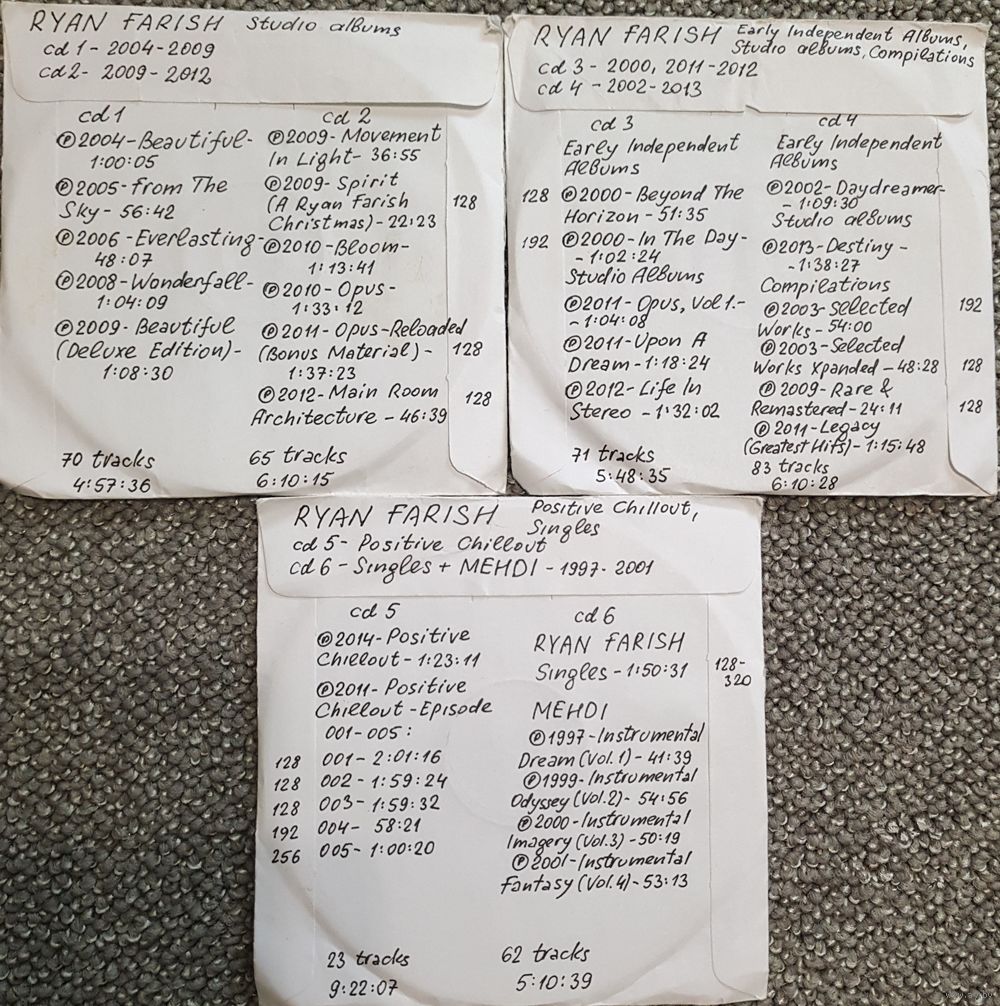 RYAN FARISH Studio albums
cd 1 - 2004-2009
cd 2 - 2009-2012
cd 1
Ⓟ2004-Beautiful-
1:00:05
Ⓟ2005-From The
Sky-56:42
Ⓟ2006-Everlasting-
48:07
Ⓟ2008-Wonderfall-
1:04:09
Ⓟ2009-Beautiful
(Deluxe Edition)-
1:08:30
70 tracks
4:57:36
cd 2
Ⓟ2009-Movement
In Light-36:55
Ⓟ2009-Spirit
(A Ryan Farish 128
Christmas)-22:23
Ⓟ2010-Bloom-
1:13:41
Ⓟ2010-Opus-
1:33:12
Ⓟ2011-Opus-Reloaded
(Bonus Material)- 128
1:37:23
Ⓟ2012-Main Room 128
Architecture-46:39
65 tracks
6:10:15
RYAN FARISH Early Independent Albums,
Studio albums, Compilations
cd 3 - 2000, 2011-2012
cd 4 - 2002-2013
cd 3
Early Independent
Albums
128 Ⓟ2000-Beyond The
Horizon-51:35
192 Ⓟ2000-In The Day-
-1:02:24
Studio Albums
Ⓟ2011-Opus, Vol 1.-
-1:04:08
Ⓟ2011-Upon A
Dream-1:18:24
Ⓟ2012-Life In
Stereo -1:32:02
71 tracks
5:48:35
cd 4
Early Independent
Albums
Ⓟ2002-Daydreamer-
-1:09:30
Studio albums
Ⓟ2013-Destiny-
-1:38:27
Compilations
Ⓟ2003-Selected 192
Works-54:00
Ⓟ2003-Selected
Works Xpanded-48:28 128
Ⓟ2009-Rare &
Remastered-24:11 128
Ⓟ2011-Legacy
(Greatest Hits)-1:15:48
83 tracks
6:10:28
RYAN FARISH Positive Chillout,
Singles
cd 5 - Positive Chillout
cd 6 - Singles + MEHDI - 1997-2001
cd 5
Ⓟ2014-Positive
Chillout-1:23:11
Ⓟ2011-Positive
Chillout-Episode
001-005:
128 001-2:01:16
128 002-1:59:24
128 003-1:59:32
192 004- 58:21
256 005-1:00:20
23 tracks
9:22:07
cd 6
RYAN FARISH
Singles-1:50:31 128-
320
MEHDI
Ⓟ1997-Instrumental
Dream (Vol.1)-41:39
Ⓟ1999-Instrumental
Odyssey (Vol.2)-54:56
Ⓟ2000-Instrumental
Imagery (Vol.3)-50:19
Ⓟ2001-Instrumental
Fantasy (Vol.4)-53:13
62 tracks
5:10:39